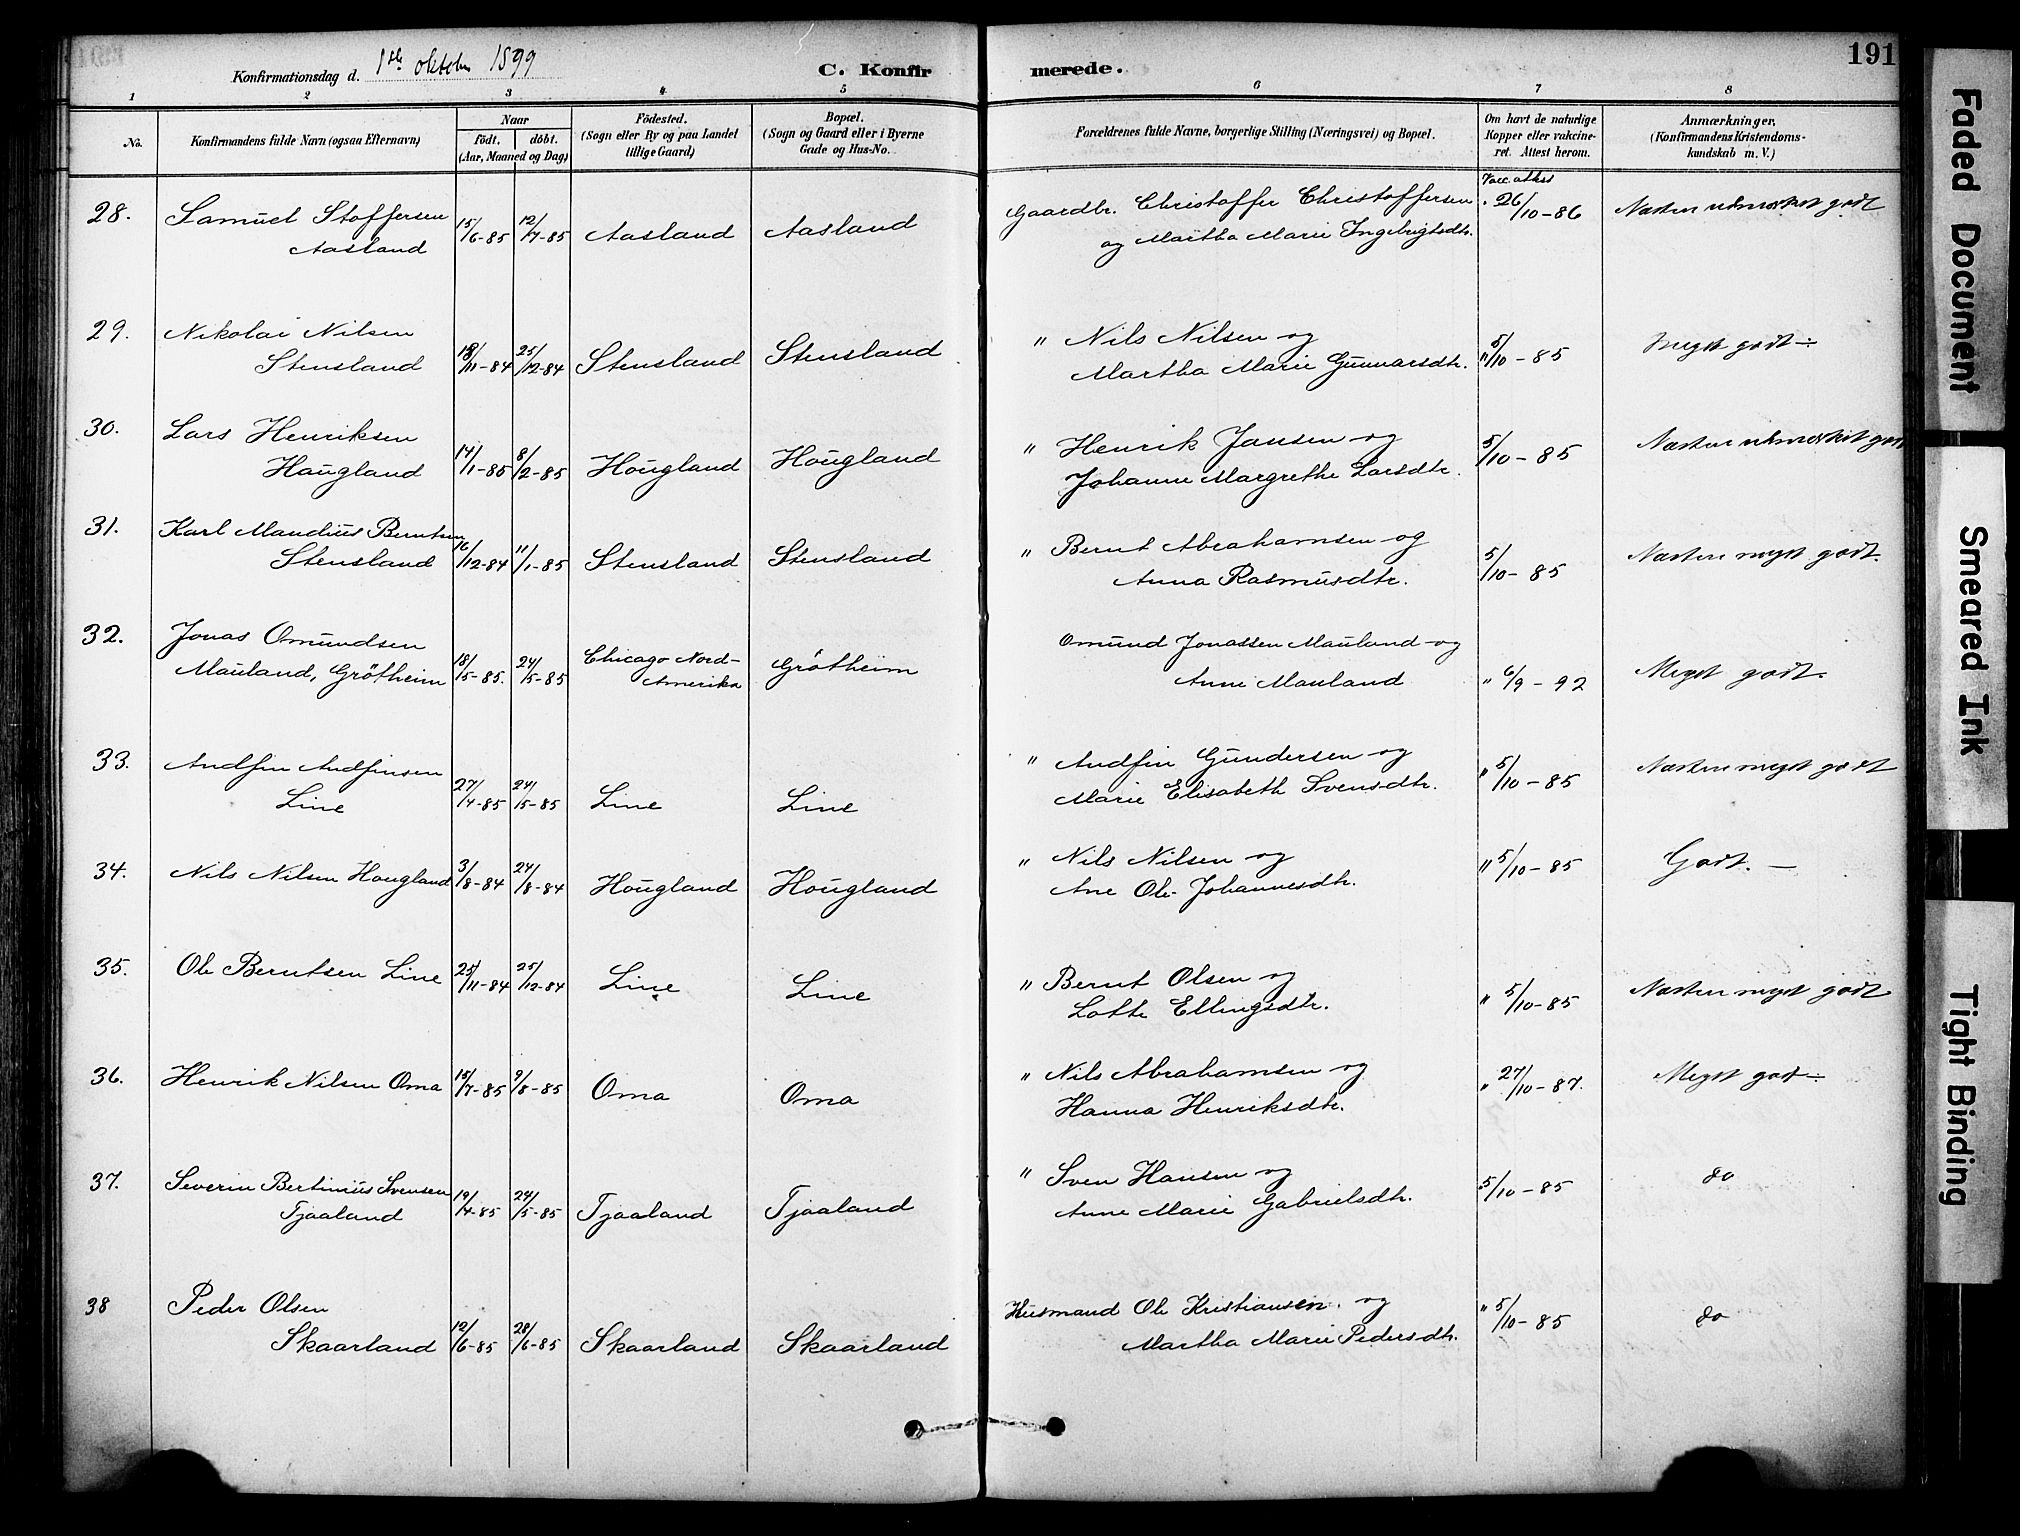 191
Konfirmationsdag d. 1ste oktober 1899
C. Konfirmerede.
1 2 3 4 5 6 7 8
No.
Konfirmandens fulde Navn (ogsaa Efternavn)
Naar
födt. döbt.
(Aar, Maaned og Dag)
Födested.
(Sogn eller By og paa Landet
tillige Gaard)
Bopæl.
(Sogn og Gaard eller i Byerne
Gade og Hus-No.
Forældrenes fulde Navne, borgerlige Stilling (Næringsvei) og Bopæl.
Om havt de naturlige
Kopper eller vakcine-
ret. Attest herom.
Anmærkninger,
(Konfirmandens Kristendoms-
kundskab m. V.)
Vacc. attest
28. Samuel Stoffersen 15/6-85 12/7-85 Aasland Aasland Gaardbr. Christoffer Christoffersen 26/10-86 Næsten udmærket godt
Aasland og Martha Marie Ingebrigtsdtr.
29. Nikolai Nilsen 18/11-84 25/12-84 Stensland Stensland " Nils Nilsen og " 5/10-85 Meget godt
Stensland Martha Marie Gunnarsdtr.
30. Lars Henriksen 14/1-85 8/2-85 Hougland Hougland " Henrik Jansen og 5/10-85 Næsten udmærket godt
Haugland Johanne Margrethe Larsdtr.
31. Karl Mandius Berntsen 16/12-84 11/1-85 Stensland Stensland " Bernt Abrahamsen og 5/10-85 Næsten meget godt.
Stensland Anna Rasmusdtr.
32. Jonas Omundsen 18/5-85. 24/5-85 Chicago Nord- Grötheim Omund Jonassen Mauland og " 6/9-92 Meget godt.
Mauland, Grötheim Amerika Anne Mauland
33. Andfin Andfinsen 27/4-85 24/5-85 Line Line " Andfin Gundersen og " 5/10-85 Næsten meget godt
Line Marie Elisabeth Svensdtr.
34. Nils Nilsen Hougland 3/8-84 24/8-84 Hougland Hougland " Nils Nilsen og " 5/10-85 Godt.
Ane Ole Johannesdtr.
35. Ole Berntsen Line 25/11-84 25/12-84 Line Line " Bernt Olsen og " 5/10-85 Næsten meget godt
Lotte Ellingsdtr.
36. Henrik Nilsen Oma 15/7-85 9/8-85 Oma Oma " Nils Abrahamsen og " 27/10-87. Meget godt
Hanna Henriksdtr.
37. Severin Bertinius Svensen 19/4-85 24/5-85 Tjaaland Tjaaland " Sven Hansen og 5/10-85 do
Tjaaland Anne Marie Gabrielsdtr.
38 Peder Olsen 12/6-85 28/6-85 Skaarland Skaarland Husmand Ole Kristiansen og " 5/10-85 do
Skaarland Martha Marie Pedersdtr.
Faded Document
Smeared Ink
Tight Binding